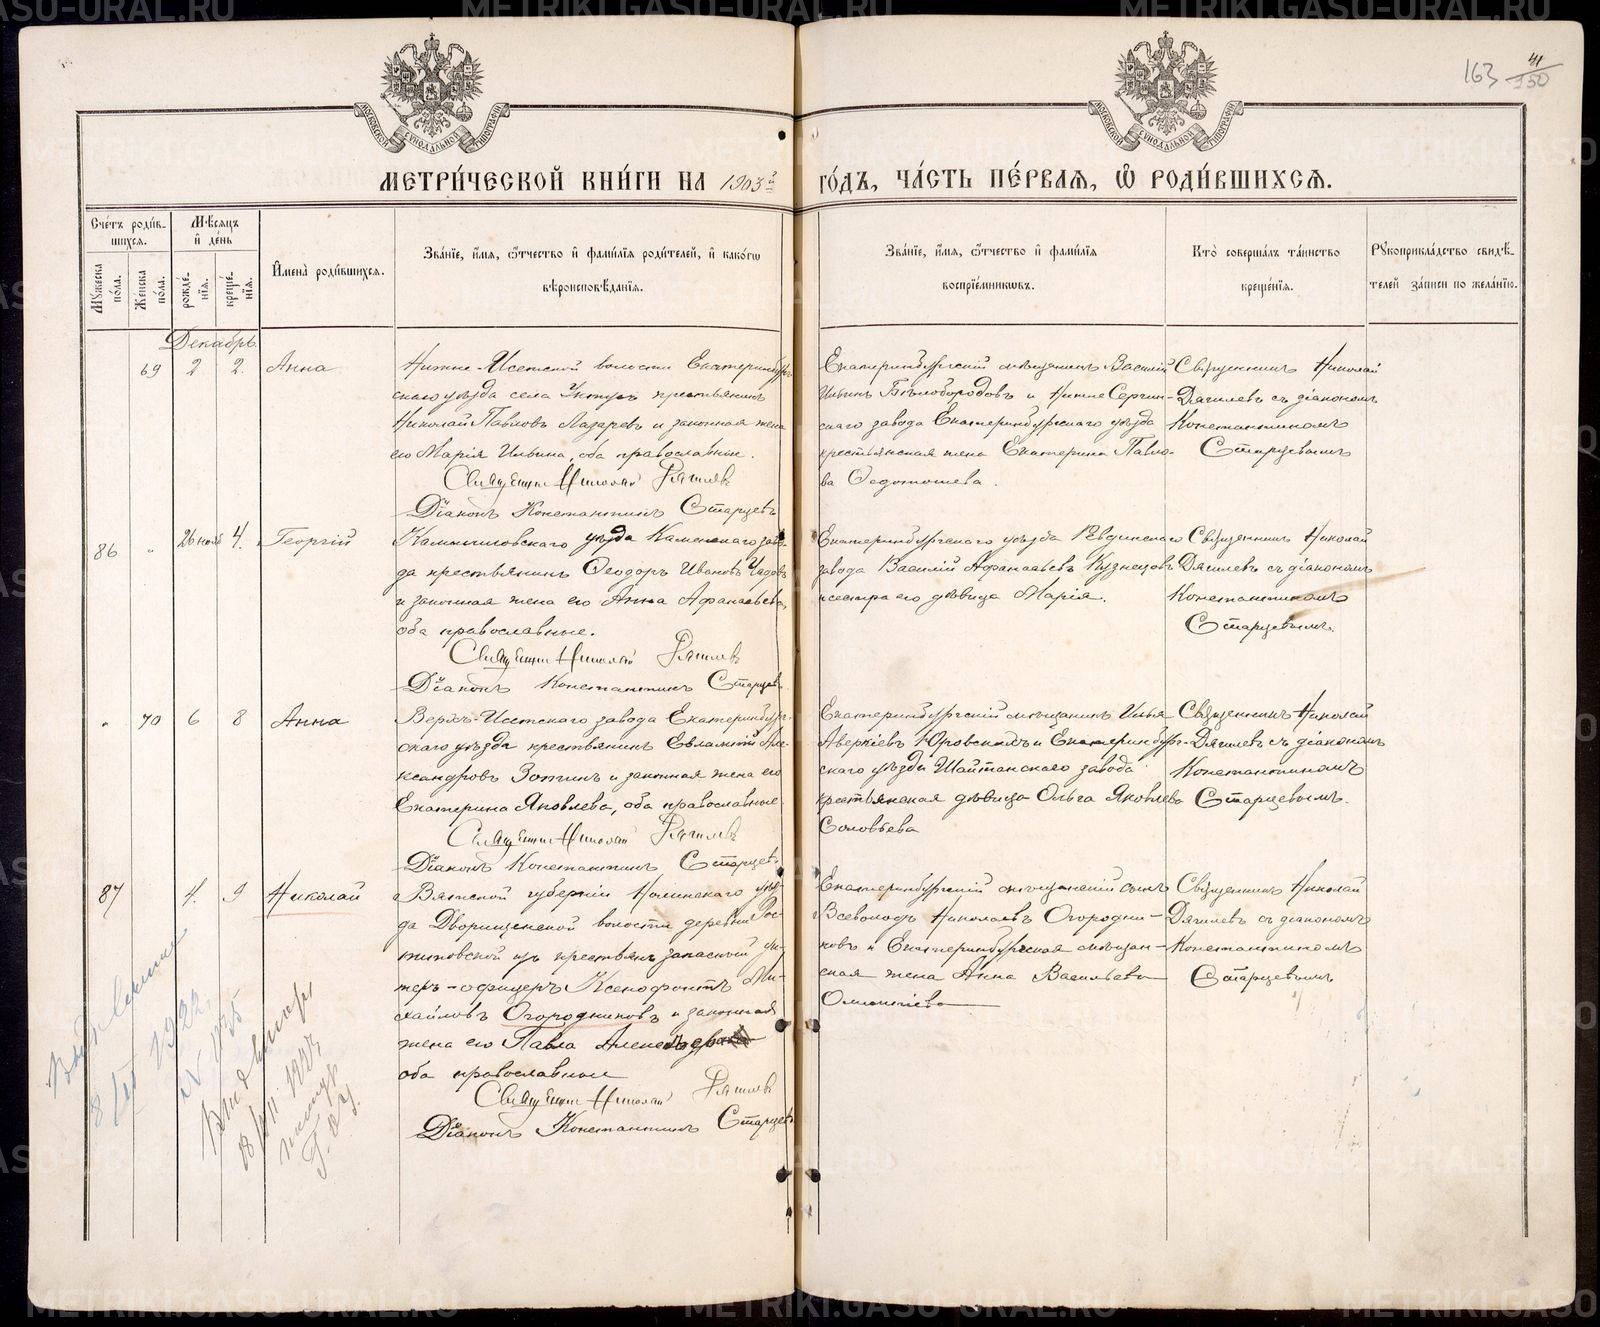 163 41/150
МОСКОВСКОЙ СѴНОДАЛЬНОЙ ТИПОГРАФІИ
МОСКОВСКОЙ СѴНОДАЛЬНОЙ ТИПОГРАФІИ
МЕТРИ́ЧЕСКОЙ КНИ́ГИ НА 1903й ГО́ДЪ, ЧА́СТЬ ПЕ́РВАЯ, Ѡ РОДИ́ВШИХСЯ.
Сче́тъ роди́в-
шихся.
Мужеска по́ла.
Же́нска по́ла.
Мѣ́сяцъ
и҆ де́нь
рожде́нїя.
креще́нїя.
И҆мена̀ роди́вшихся.
Зва́нїе, и҆́мя, ѻ҆́тчество и҆ фами́лїя роди́телей, и҆ како́гѡ
вѣроисповѣ́данїя.
Зва́нїе, и҆́мя, ѻ҆́тчество и҆ фами́лїя
воспрїе́мниковъ.
Кто̀ соверша́лъ та́инство
креще́нїя.
Рукоприкла́дство свидѣ́-
телей за́писи по жела́нїю.
Декабрь
69 2 2. Анна
Нижне-Исетской волости Екатеринбург-
скаго уѣзда села Уктусъ крестьянинъ
Николай Павловъ Лазаревъ и законная жена
его Марія Ильина, оба православные.
Священникъ Николай Дягилевъ
Діаконъ Константинъ Старцевъ
Екатеринбургскій мѣщанинъ Василій
Ильинъ Бѣлобородовъ и Нижне Сергин-
скаго завода Екатеринбургскаго уѣзда
крестьянская жена Екатерина Павло-
ва Ѳедотошева.
Священникъ Николай
Дягилевъ съ діакономъ
Константиномъ
Старцевымъ
86 " 26 нояб 4. Георгій
Камышловскаго уѣзда Каменскаго заво-
да крестьянинъ Ѳеодоръ Ивановъ
и законная жена его Анна Афанасьева,
оба православные.
Священникъ Николай Дягилевъ
Діаконъ Константинъ Старцевъ
Екатеринбургскаго уѣзда Ревдинскаго
завода Василій Афанасьевъ Кузнецовъ
и сестра его дѣвица Марія.
Священникъ Николай
Дягилевъ съ діакономъ
Константиномъ
Старцевымъ.
" 70 6 8 Анна
Верхъ-Исетскаго завода Екатеринбург-
скаго уѣзда крестьянинъ Евлампій Але-
ксандровъ Зотинъ и законная жена его
Екатерина Яковлева, оба православные
Священникъ Николай Дягилевъ
Діаконъ Константинъ Старцевъ
Екатеринбургскій мѣщанинъ Илья
Аверкіевъ Юровскихъ и Екатеринбург-
скаго уѣзда Шайтанскаго завода
крестьянская дѣвица Ольга Яковлева
Соловьева
Священникъ Николай
Дягилевъ съ діакономъ
Константиномъ
Старцевымъ.
87 4. 9 Николай
Вятской губерніи Нолинскаго уѣз-
да Дворищенской волости деревни
изъ крестьянъ запасный ун-
теръ-офицеръ Ксенофонтъ Ми-
хайловъ Огородниковъ и законная
жена его Павла
оба православные
Священникъ Николай Дягилевъ
Діаконъ Константинъ Старцевъ
Екатеринбургскій мѣщанскій сынъ
Всеволодъ Николаевъ Огородни-
ковъ и Екатеринбургская мѣщан-
ская жена Анна Васильева
Священникъ Николай
Дягилевъ съ діакономъ
Константиномъ
Старцевымъ
1922
METRIKI.GASO-URAL.RU